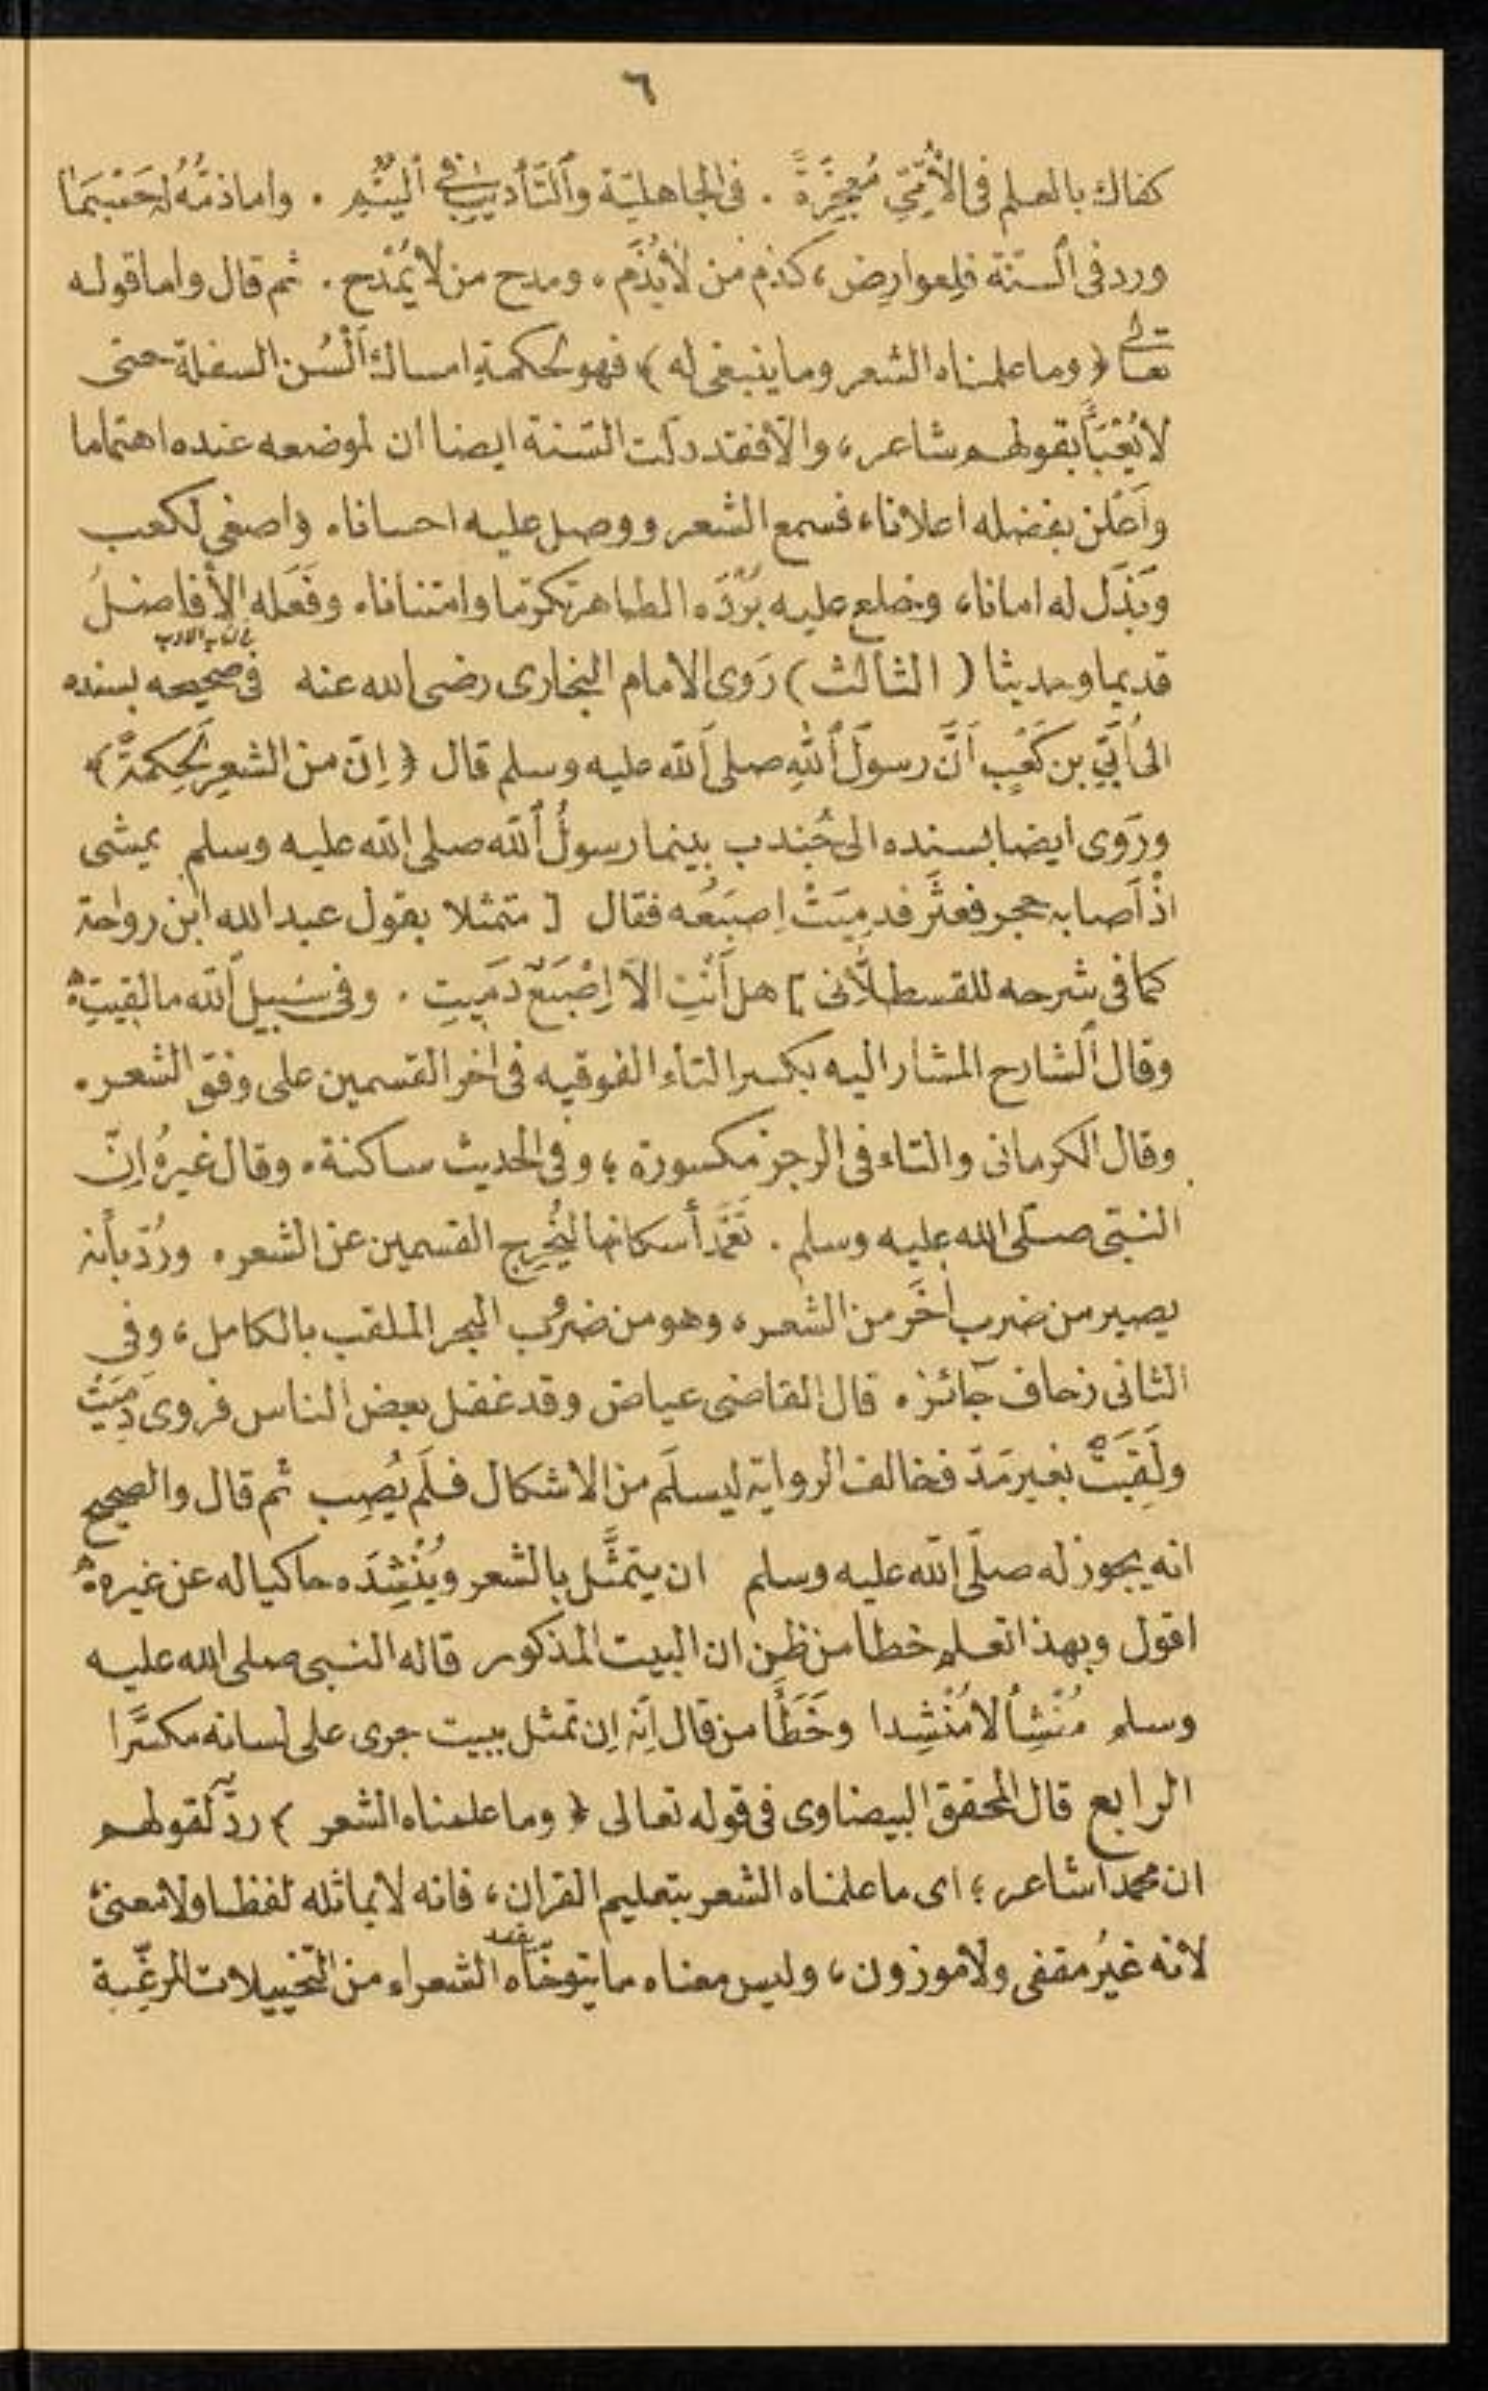 ٦
كفاك بالعلم فى الأُمِّىِّ مُعجِزَةً . فى الجاهليّة وَالتَّأديبِ فى اليُتُمِ . واما ذمُّهُ حسبما
ورد فى السّنة فلعوارِض ، كذم من لا يُذَم ، ومدح من لا يُمْدح . ثم قال واما قوله
تعالى ﴿ وما علمناه الشعر وما ينبغى له ﴾ فهو لحكمةِ امساك اَلْسُن السفلة حتى
لا يُعْبَأَ بقولهم شاعر ، والّا فقد دلّت السّنة ايضا ان لموضعه عنده اهتماما
واَعْلَن بفضله اعلانا ، فسمع الشعر ووصل عليه احسانا ، واصغى لكعب
وبَذَل له امانا ، وخلع عليه بُرْدَه الطاهر تكرّما وامتنانا ، وفَعَله الأفاضلُ
قديما وحديثا ( الثالث ) رَوى الامام البخارى رضى الله عنه فى صحيحه بسنده
فى كتاب الادب
الى اُبَىِّ بن كَعْبٍ اَنَّ رسولَ اللهِ صلى اَلله عليه وسلم قال ﴿ اِنّ من الشعرِ لَحِكمةً ﴾
ورَوى ايضا بسنده الى جُندب بينما رسولُ اَلله صلى الله عليه وسلم يمشى
اذْ اَصابه حجر فعثَر فدمِيَتْ اِصبَعُه فقال [ متمثلا بقول عبد الله ابن رواحة
كما فى شرحه للقسطلّانى ] هل اَنْتِ الاّ اِصْبَعٌ دَمِيتِ . وفى سَبيل اَلله ما لقيتِ
وقال اَلشارح المشار اليه بكسر التاء الفوقيه فى اخر القسمين على وفق الشعر .
وقال الكرمانى والتاء فى الرجز مكسورة ؛ وفى الحديث ساكنة . وقال غيرُه اِنّ
النبّى صلّى الله عليه وسلم . تَعَمَّد أسكانها ليُخْرِج القسمين عن الشعر . ورُدّ بأنه
يصير من ضرب اٰخَر من الشعر ، وهو من ضرُوب البحر الملقب بالكامل ، وفى
الثانى زحاف جآئز . قال القاضى عياض وقد غفل بعض الناس فروى دَمِيَتْ
ولَقِيَتْ بغير مَدّ فخالف الرواية ليسلَم من الاشكال فلَم يُصِب ثم قال والصحيح
انه يجوز له صلّى الله عليه وسلم ان يتمثَّل بالشعر ويُنْشِدَه حاكيا له عن غيره
اقول وبهذا تعلم خطأ من ظن ان البيت المذكور قاله النبى صلى الله عليه
وسلم مُنْشِأً لا مُنْشِدا وخَطَأَ من قال اِنّه اِن تمثل ببيت جرى على لسانه مكسَّرا
الرابع قال المحقق البيضاوى فى قوله تعالى ﴿ وما علمناه الشعر ﴾ ردّ لقولهم
ان محمدا شاعر ؛ اى ما علمناه الشعر بتعليم القران ، فانه لا يماثله لفظا ولا معنىً
لانه غيرُ مقفى ولا موزون ، وليس معناه ما يتوخّاه الشعراء من التّخييلات المرغّبة